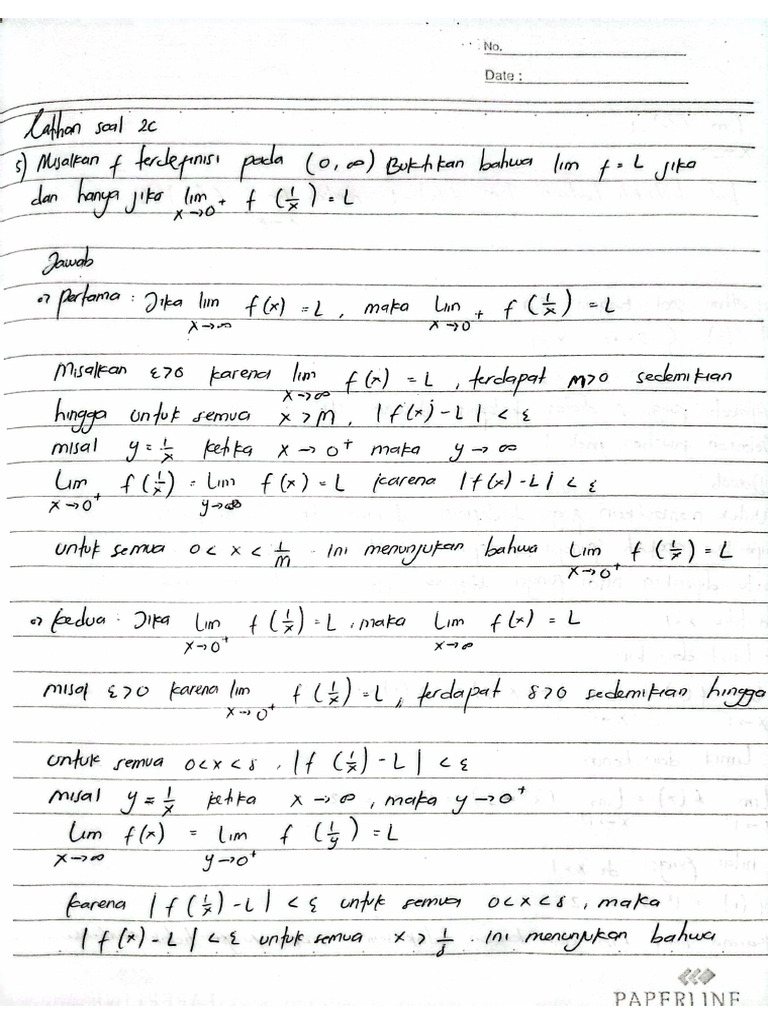 No.
Date :
Latihan soal 2c
5) Misalkan f terdefinisi pada (0, ∞) Buktikan bahwa lim f = L jika
dan hanya jika lim x→0+ f (1/x) = L
Jawab
Pertama : Jika lim x→∞ f(x) = L, maka Lim x→0+ f (1/x) = L
Misalkan ε>0 karena lim x→∞ f(x) = L, terdapat M>0 sedemikian
hingga untuk semua x > M, |f(x) - L| < ε
misal y = 1/x ketika x → 0+ maka y → ∞
Lim x→0+ f(1/x) = Lim y→∞ f(x) = L karena |f(x) - L| < ε
untuk semua 0 < x < 1/M . ini menunjukan bahwa Lim x→0+ f(1/x) = L
kedua : Jika Lim x→0+ f(1/x) = L, maka Lim x→∞ f(x) = L
misal ε>0 karena lim x→0+ f(1/x) = L, terdapat δ>0 sedemikian hingga
untuk semua 0<x<δ, |f (1/x) - L| < ε
misal y = 1/x ketika x → ∞, maka y → 0+
Lim x→∞ f(x) = Lim y→0+ f (1/y) = L
karena |f(1/x) - L| < ε untuk semua 0<x<δ, maka
|f(x) - L| < ε untuk semua x > 1/δ . ini menunjukan bahwa
PAPERLINE